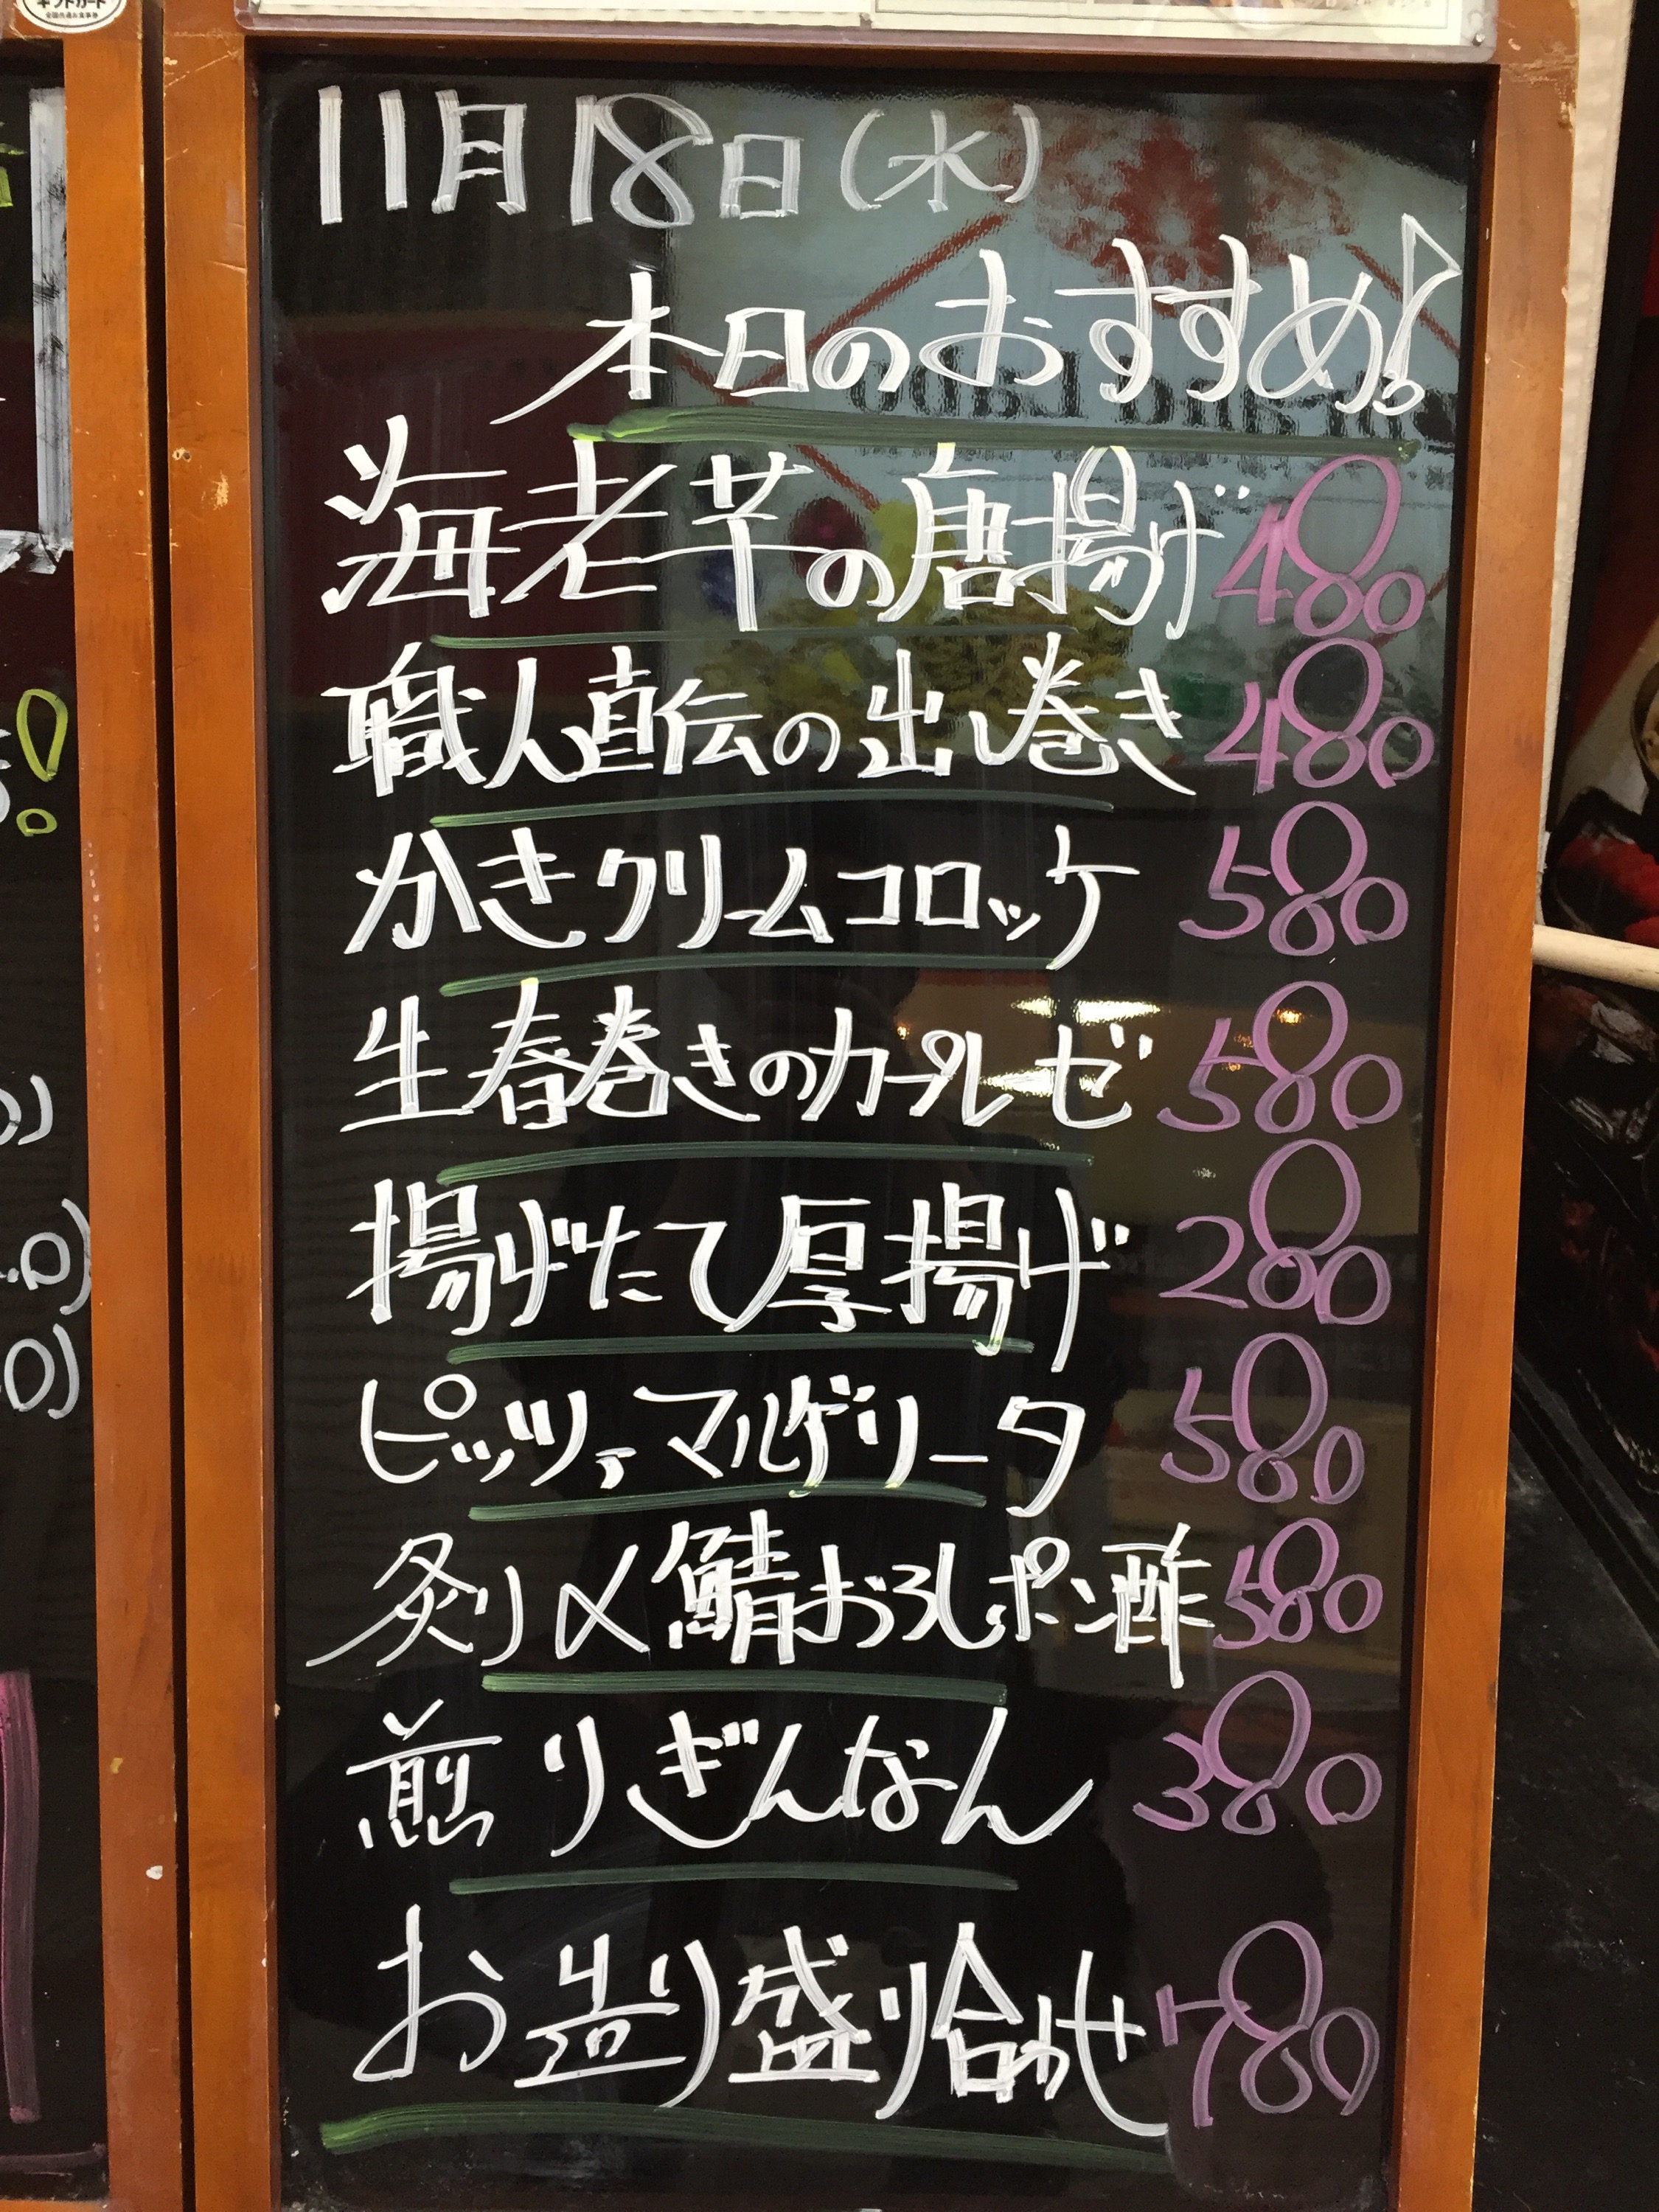 ギフトカード
全国共通お食事券
11月18日(水)
本日のおすすめ!
海老芋の唐揚げ 480
職人直伝の出し巻き 480
かきクリームコロッケ 580
生春巻きのカプレーゼ 580
揚げたて厚揚げ 280
ピッツァマルゲリータ 580
炙り〆鯖おろしポン酢 580
煎りぎんなん 380
お造り盛り合わせ 780